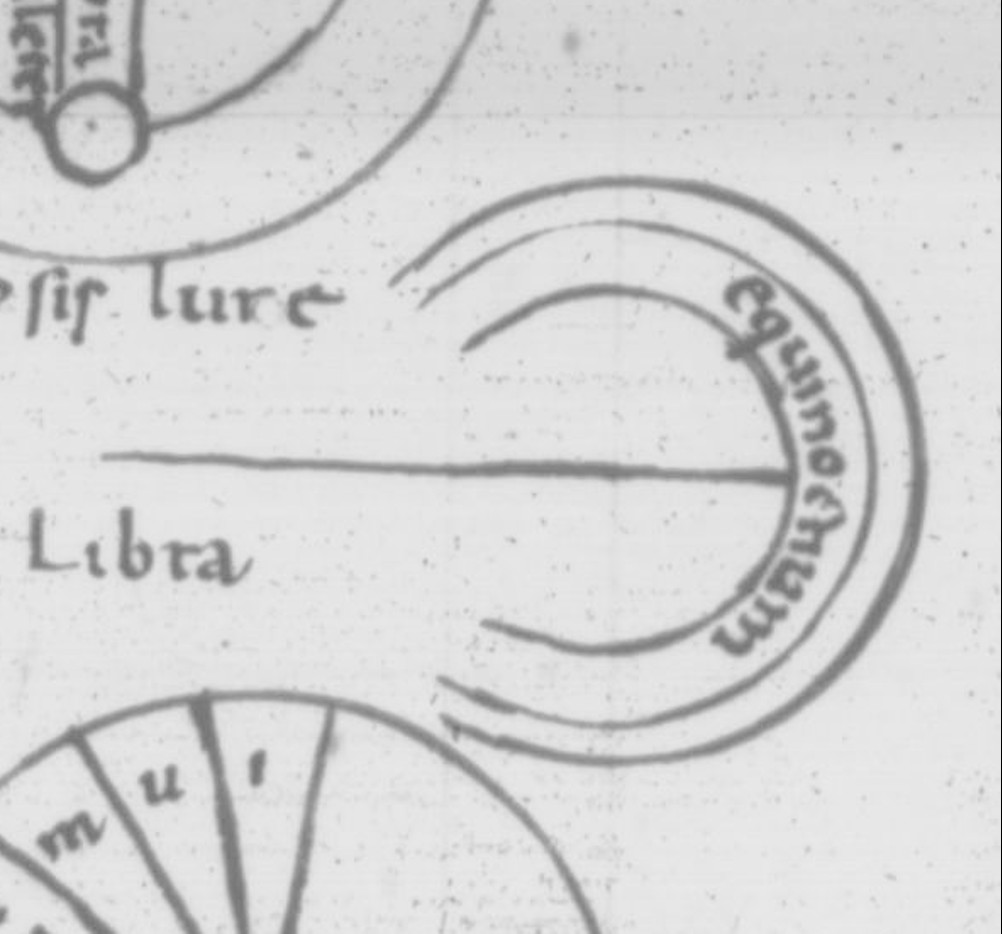 sis lure
equinoctium
Libra
m u i